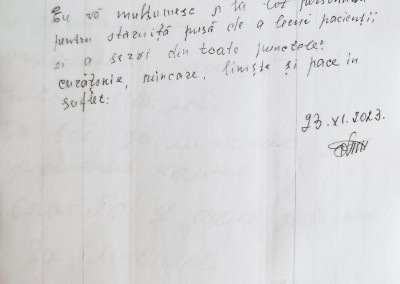 Eu vă mulțumesc și la tot personalul
pentru stăruiță pusă de a lecui pacienții,
și a servi din toate punctele:
curățenie, mîncare, liniște și pace în
suflet.
23.XI.2023.